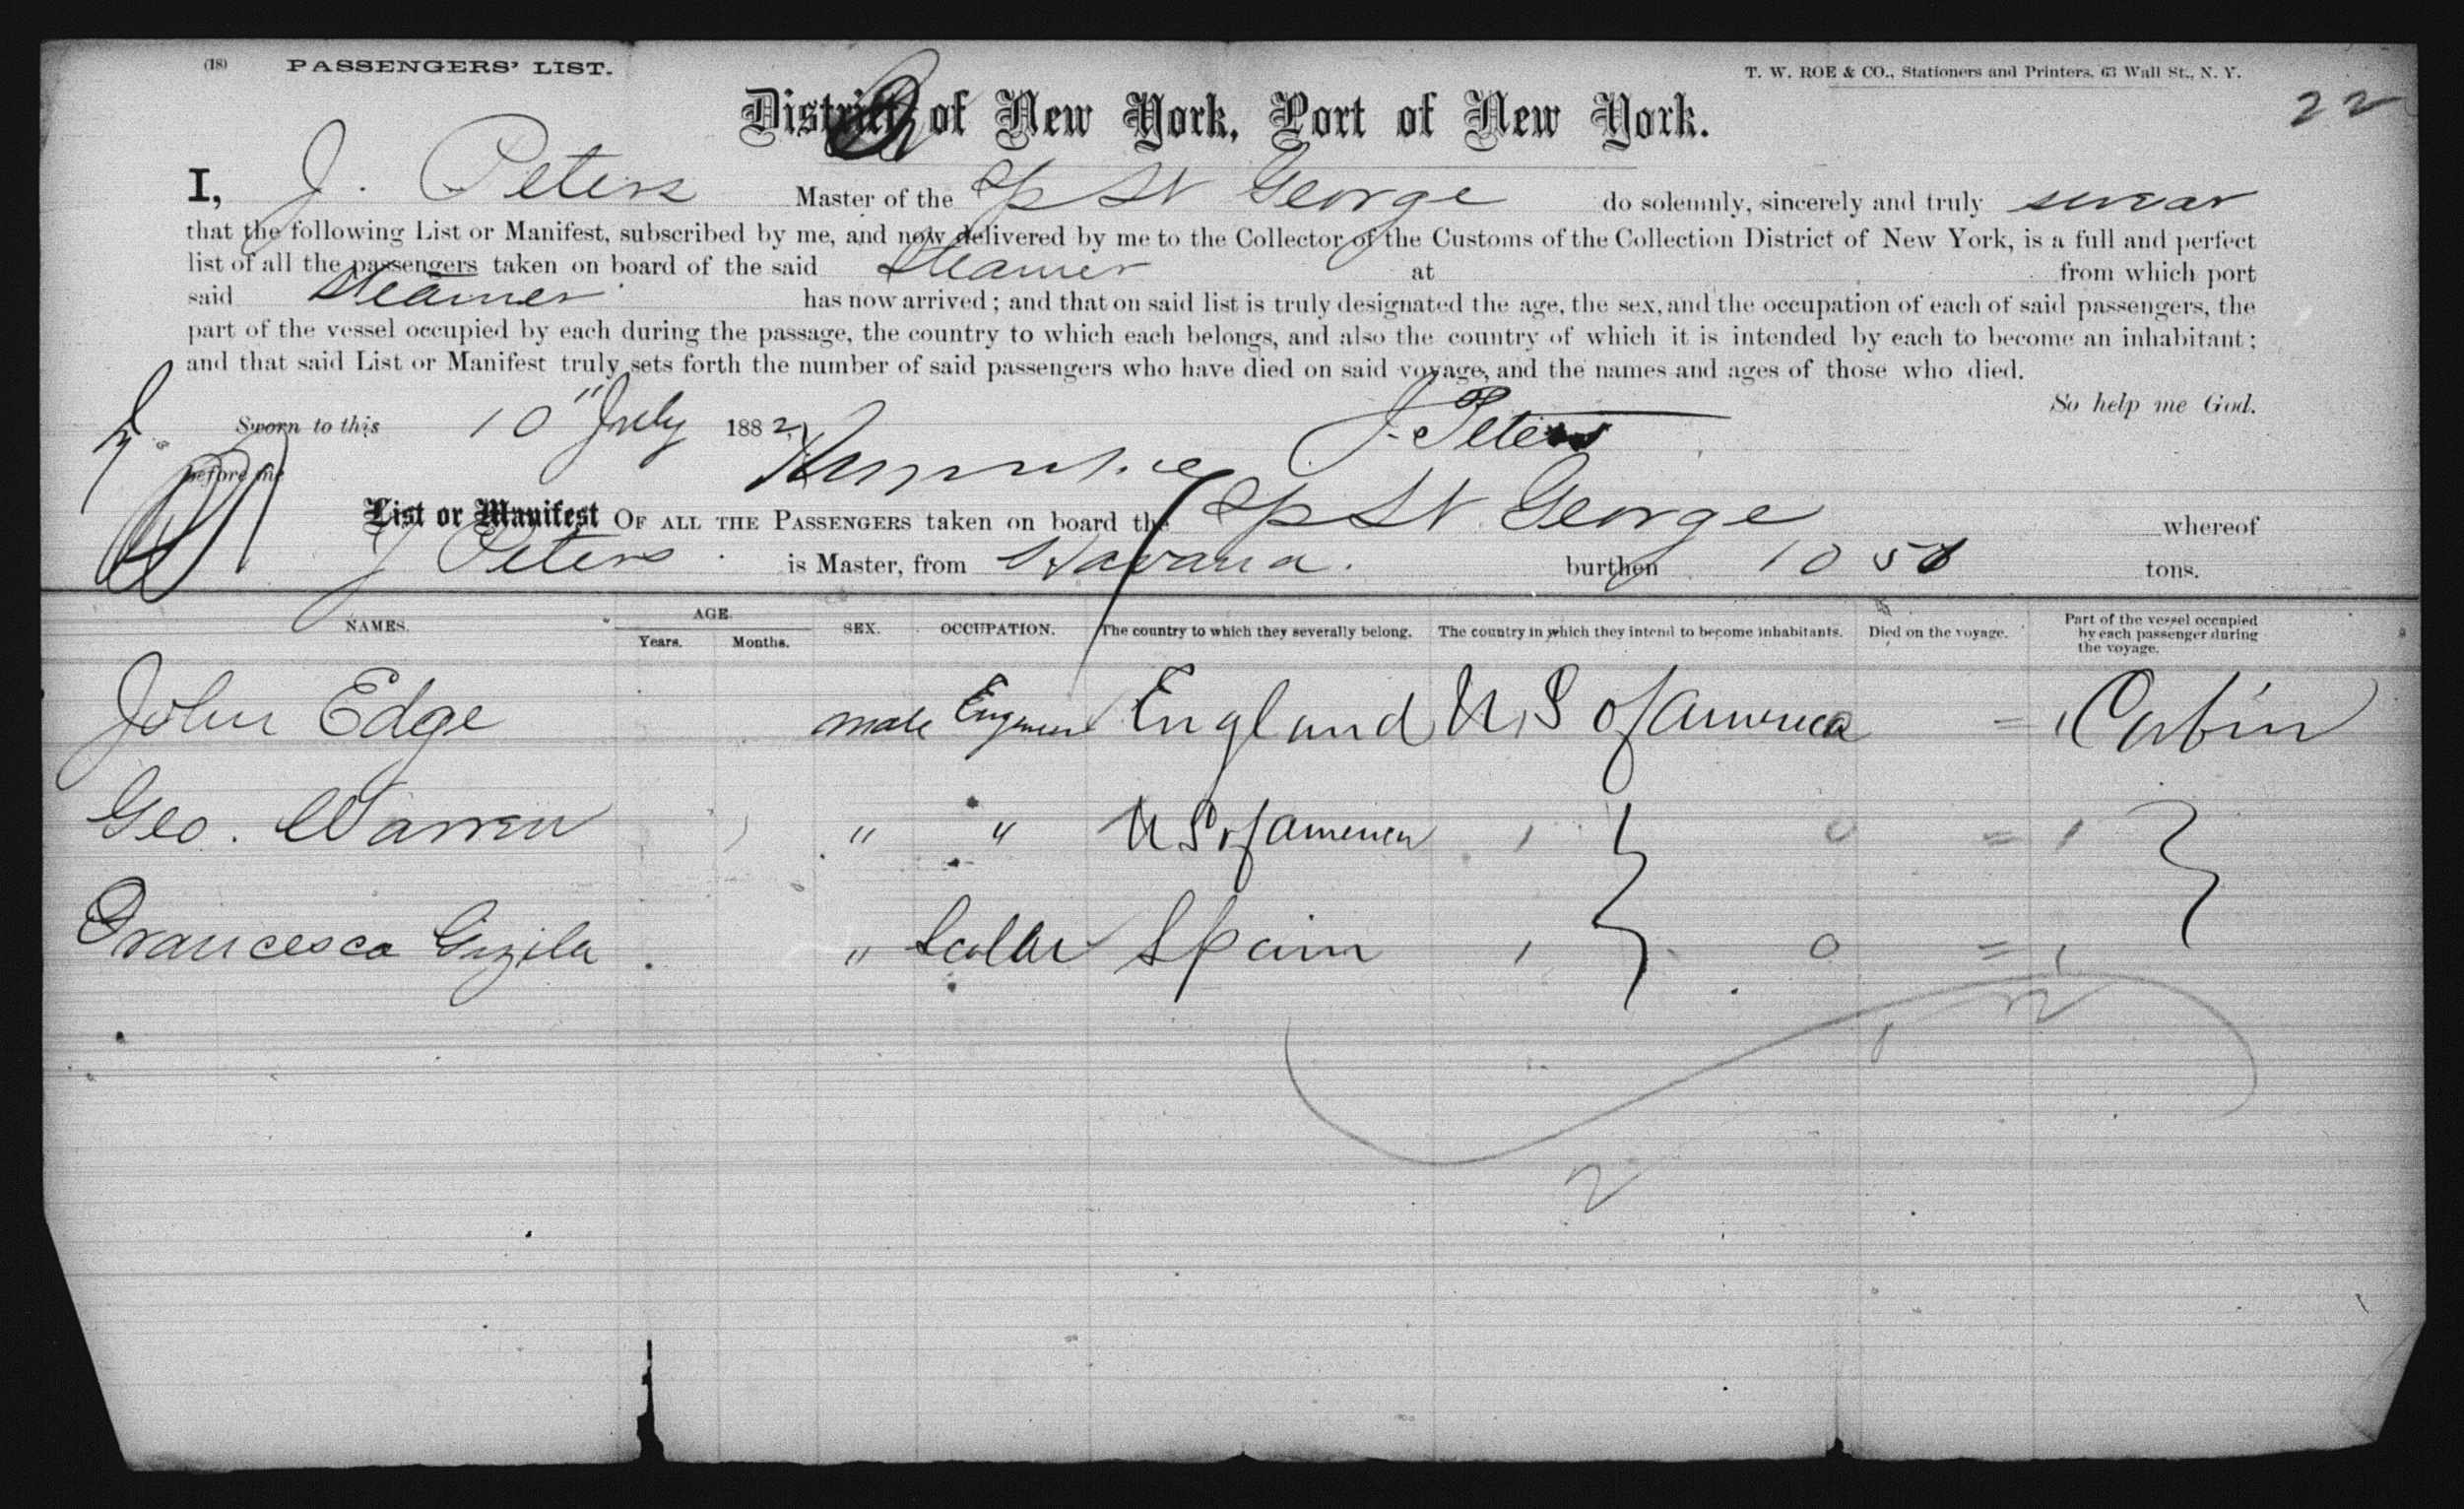 (18) PASSENGERS' LIST.
T. W. ROE & CO., Stationers and Printers, 63 Wall St., N. Y.
22
District of New York, Port of New York.
I, J. Peters Master of the Sp St George do solemnly, sincerely and truly swear
that the following List or Manifest, subscribed by me, and now delivered by me to the Collector of the Customs of the Collection District of New York, is a full and perfect
list of all the passengers taken on board of the said Steamer at from which port
said Steamer has now arrived; and that on said list is truly designated the age, the sex, and the occupation of each of said passengers, the
part of the vessel occupied by each during the passage, the country to which each belongs, and also the country of which it is intended by each to become an inhabitant;
and that said List or Manifest truly sets forth the number of said passengers who have died on said voyage, and the names and ages of those who died.
So help me God.
Sworn to this 10" July 1882 J. Peters
before me
List or Manifest OF ALL THE PASSENGERS taken on board the Sp St George whereof
J Peters is Master, from Havana. burthen tons.
NAMES. AGE. Years. Months. SEX. OCCUPATION. The country to which they severally belong. The country in which they intend to become inhabitants. Died on the voyage. Part of the vessel occupied by each passenger during the voyage.
John Edge male Engineer England U.S of America = Cabin
Geo. Warren " " U S of America =
Francesco " Scollar Spain =
2
2